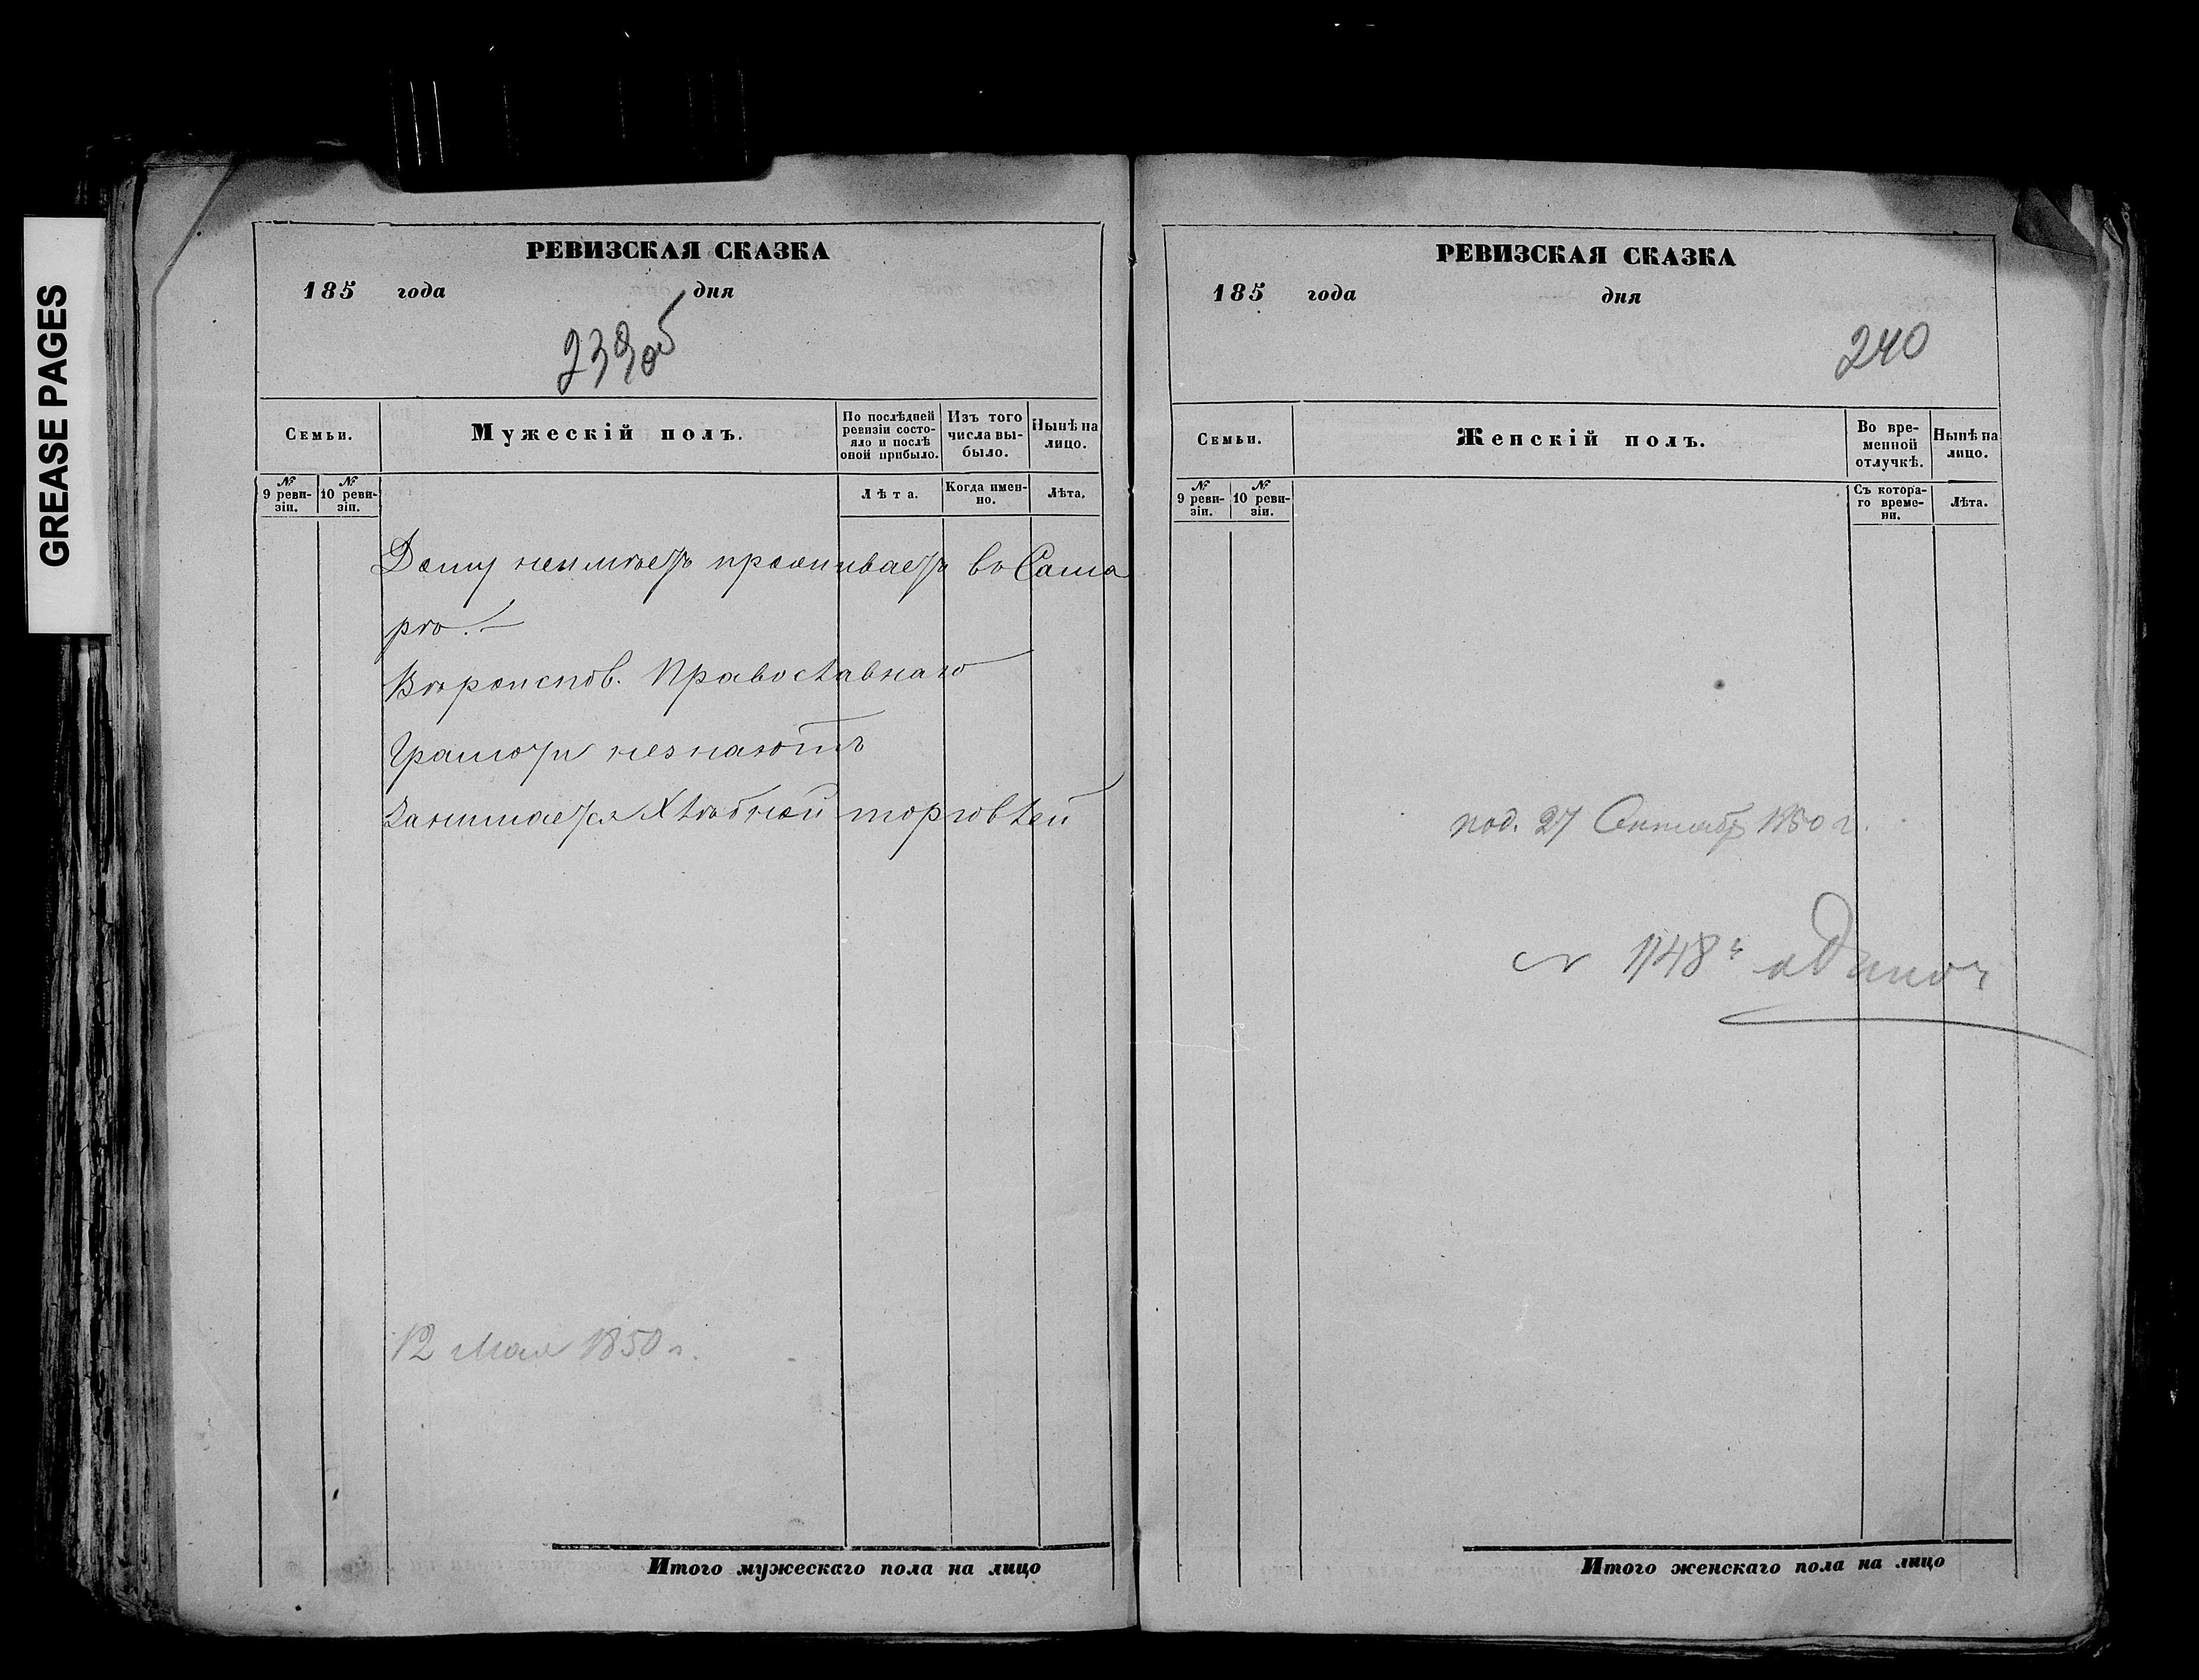 GREASE PAGES
РЕВИЗСКАЯ СКАЗКА
185 года дня
239об
Семьи.
Мужескій полъ.
По послѣдней ревизіи состояло и послѣ оной прибыло.
Изъ того числа выбыло.
Нынѣ на лицо.
№ 9 ревизіи.
№ 10 ревизіи.
Лѣта.
Когда именно.
Лѣта.
Дому неимѣетъ проживаетъ въ Сама
рѣ.—
Вѣроиспов. Православнаго
Грамоты незнаютъ
Занимается Хлѣбной торговлей
12 Мая 1850 г.
Итого мужескаго пола на лицо
РЕВИЗСКАЯ СКАЗКА
185 года дня
240
Семьи.
Женскій полъ.
Во временной отлучкѣ.
Нынѣ на лицо.
№ 9 ревизіи.
№ 10 ревизіи.
Съ котораго времени.
Лѣта.
под. 27 1850 г.
1748
Итого женскаго пола на лицо